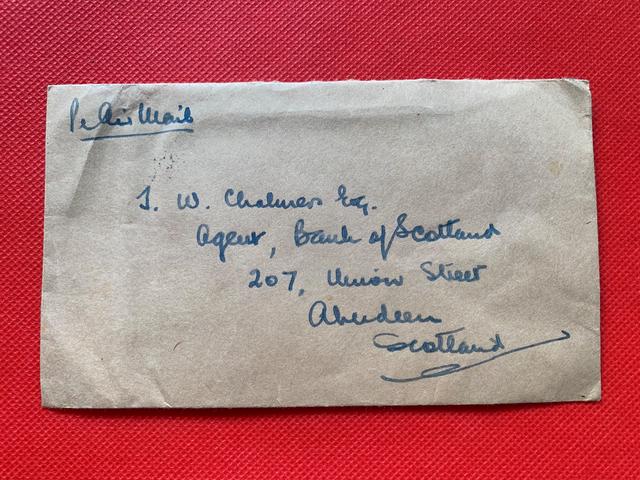 Per Air Mail
J. W. Chalmers Esq.
Agent, Bank of Scotland
207, Union Street
Aberdeen
Scotland